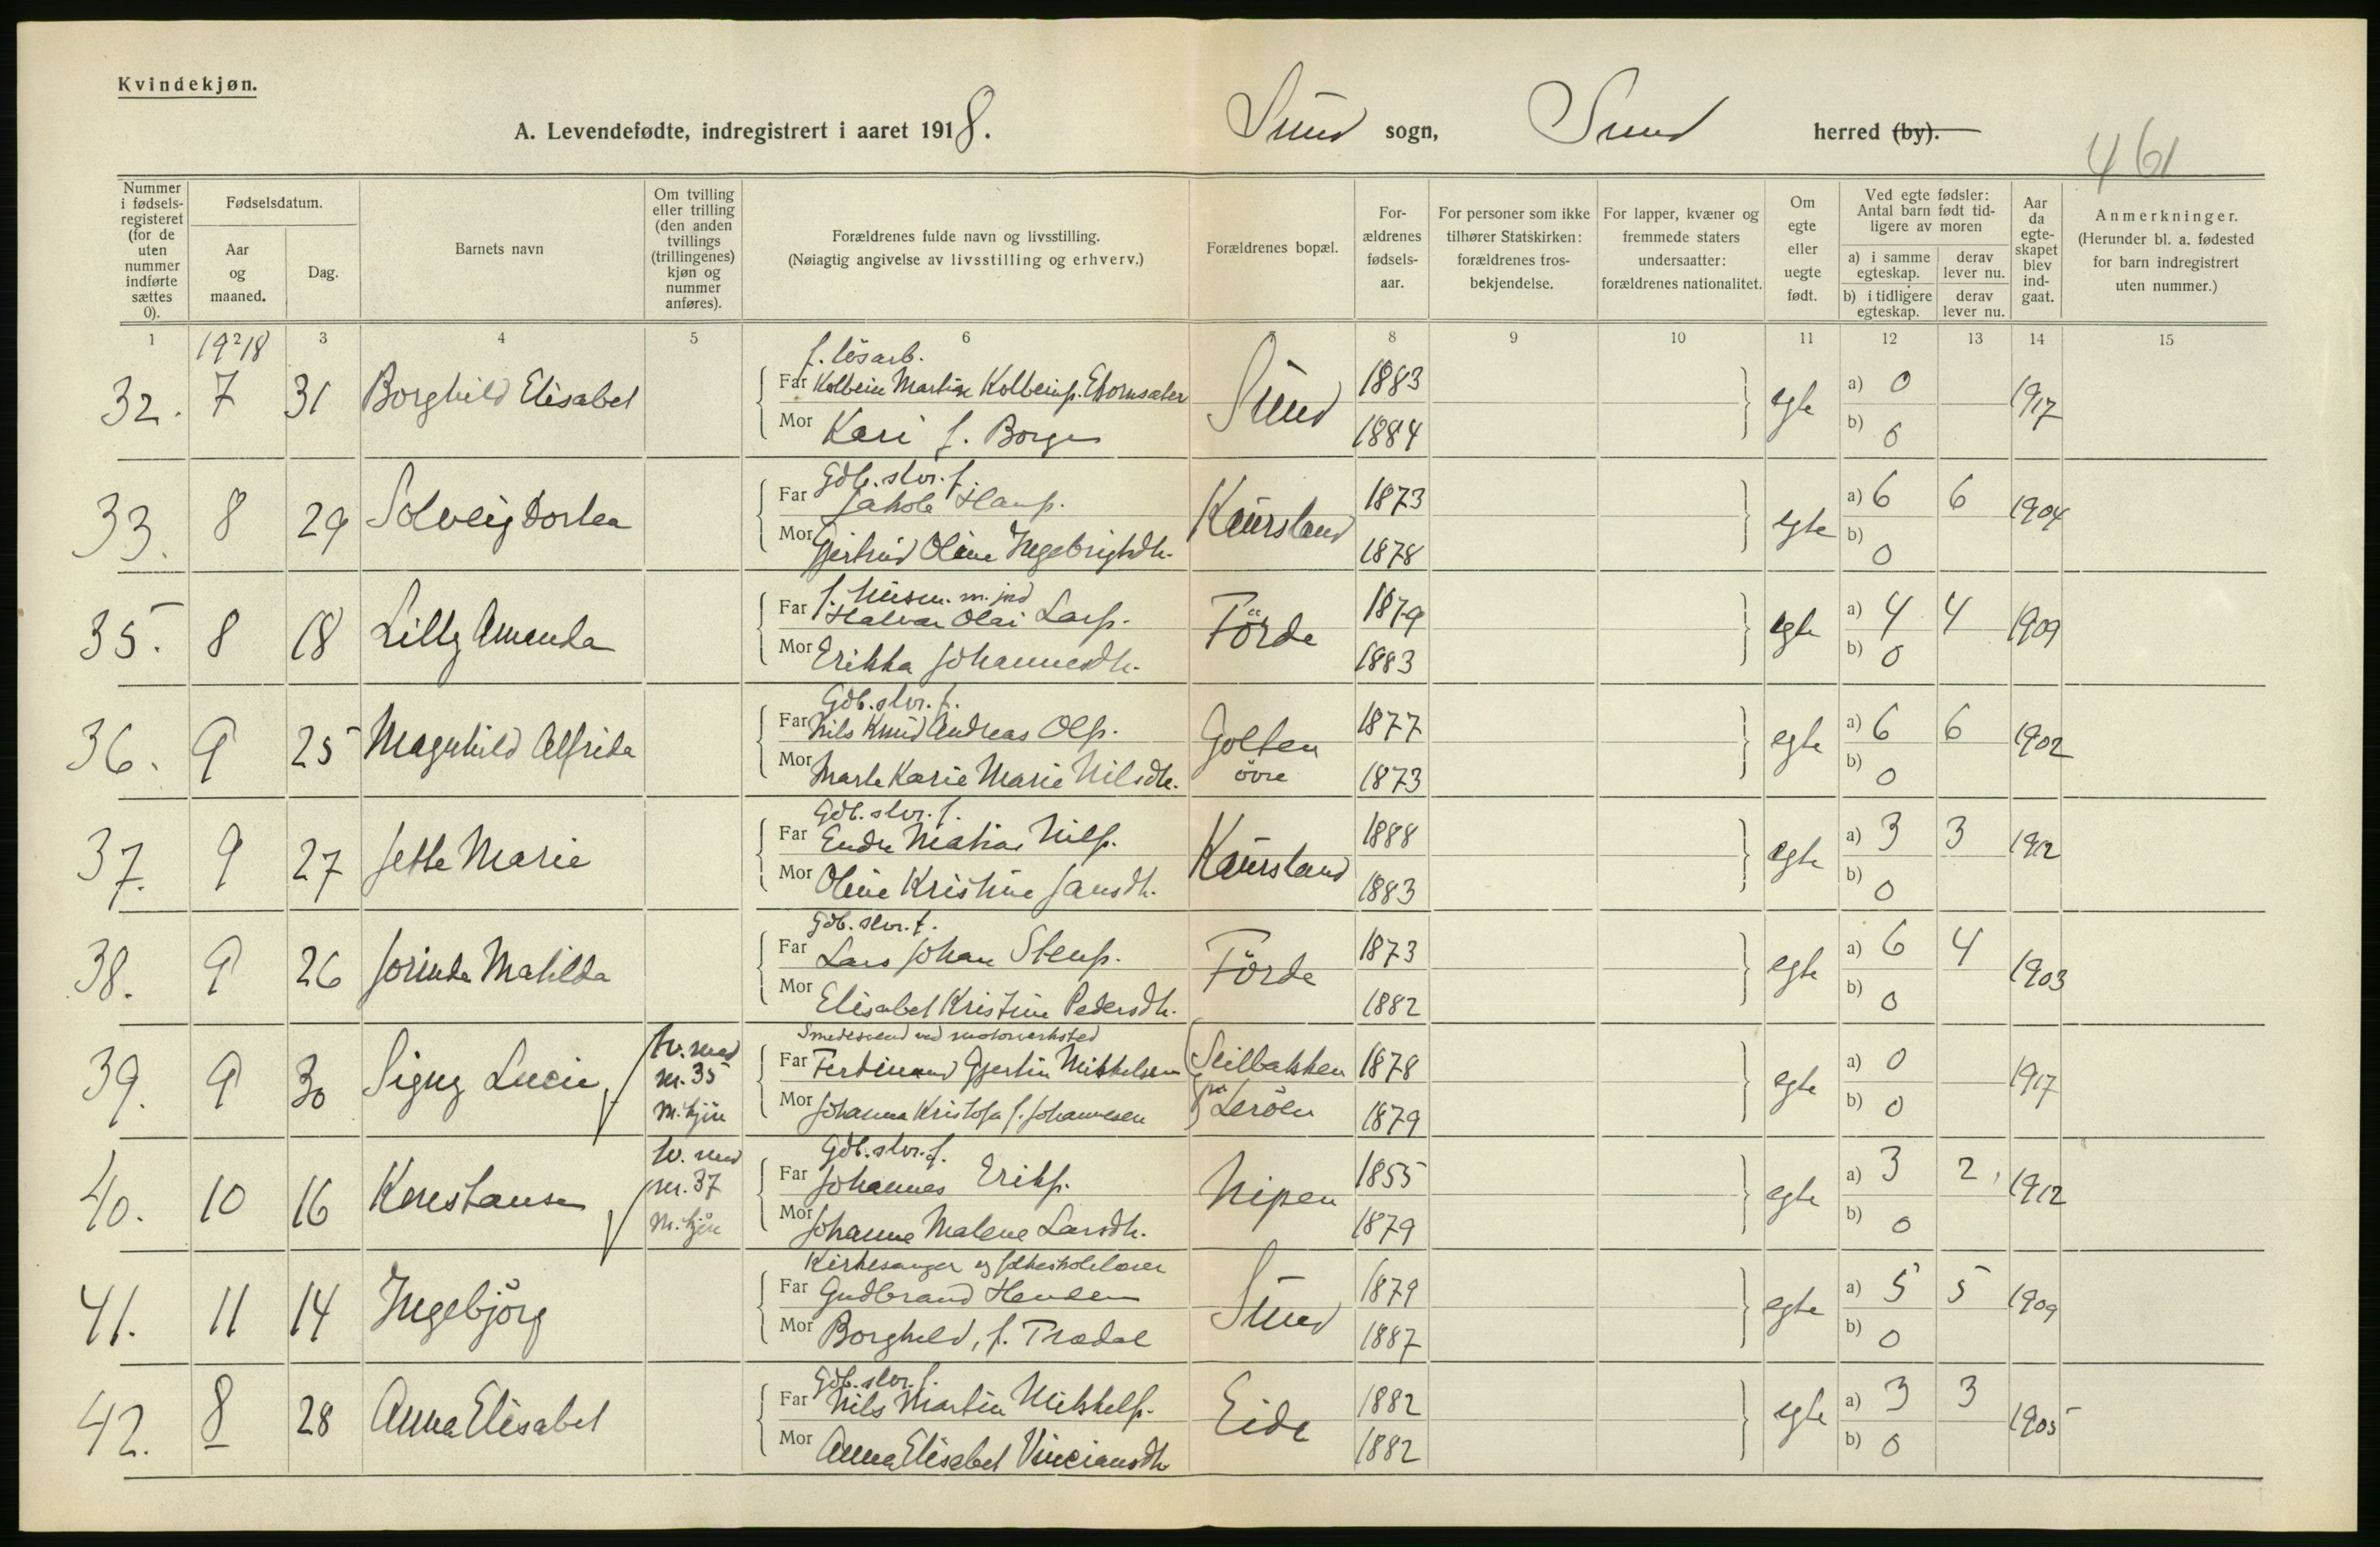 Kvindekjøn.
A. Levendefødte, indregistrert i aaret 1918. Sund sogn, Sund herred (by).
461
Nummer i fødselsregisteret (for de uten nummer indførte sættes 0).
Fødselsdatum.
Aar og maaned.
Dag.
Barnets navn
Om tvilling eller trilling (den anden tvillings (trillingenes) kjøn og nummer anføres).
Forældrenes fulde navn og livsstilling.
(Nøiagtig angivelse av livsstilling og erhverv.)
Forældrenes bopæl.
For-ældrenes fødsels-aar.
For personer som ikke tilhører Statskirken: forældrenes tros-bekjendelse.
For lapper, kvæner og fremmede staters undersaatter: forældrenes nationalitet.
Om egte eller uegte født.
Ved egte fødsler: Antal barn født tid-ligere av moren
a) i samme egteskap.
derav lever nu.
b) i tidligere egteskap.
derav lever nu.
Aar da egte-skapet blev ind-gaat.
Anmerkninger.
(Herunder bl. a. fødested for barn indregistrert uten nummer.)
1 2 3 4 5 6 7 8 9 10 11 12 13 14 15
1918
f. løsarb.
32. 7 31 Borghild Elisabet Far Kolbein Martin Kolbeins. Sund 1883 egte a) 0 1917
Mor Kari f. Borge 1884 b) 0
Gdb. slvr. f.
33. 8 29 Solveig Dortea Far Jakob Hanss. Kausland 1873 egte a) 6 6 1904
Mor Gjertrud Oline Ingebrigtsdtr. 1878 b) 0
f. husm. m. jord
35. 8 18 Lilly Amanda Far Halvar Olai Larss. Förde 1879 egte a) 4 4 1909
Mor Erikka Johannesdtr. 1883 b) 0
Gdb. slvr. f.
36. 9 25 Magnhild Alfrida Far Nils Knud Andreas Olss. Golten övre 1877 egte a) 6 6 1902
Mor Marta Karie Marie Nilsdtr. 1873 b) 0
Gdb. slvr. f.
37. 9 27 Jette Marie Far Endre Matias Nilss. Kausland 1888 egte a) 3 3 1912
Mor Oline Kristine Jansdtr. 1883 b) 0
Gdb. slvr. f.
38. 9 26 Jorinda Matilda Far Lars Johan Stens. Förde 1873 egte a) 6 4 1903
Mor Elisabet Kristine Pedersdtr. 1882 b) 0
Smedesvend ved motorverksted
39. 9 30 Signy Lucie tv. med nr. 35 m. kjön Far Ferdinand Gjertin Mikkelsen Seilbakken på Leröen 1878 egte a) 0 1917
Mor Johanna Kristofa f. Johannesen 1879 b) 0
Gdb. slvr. f.
40. 10 16 Konstanse tv. med nr. 37 m. kjön Far Johannes Eriks. Nipen 1855 egte a) 3 2 1912
Mor Johanne Malene Larsdtr. 1879 b) 0
Kirkesanger og folkeskolelærer
41. 11 14 Ingebjörg Far Gudbrand Sund 1879 egte a) 5 5 1909
Mor Borghild, f. Trædal 1887 b) 0
Gdb. slvr. f.
42. 8 28 Anna Elisabet Far Nils Martin Mikkels. Eide 1882 egte a) 3 3 1905
Mor Anna Elisabet Vinciansdtr 1882 b) 0